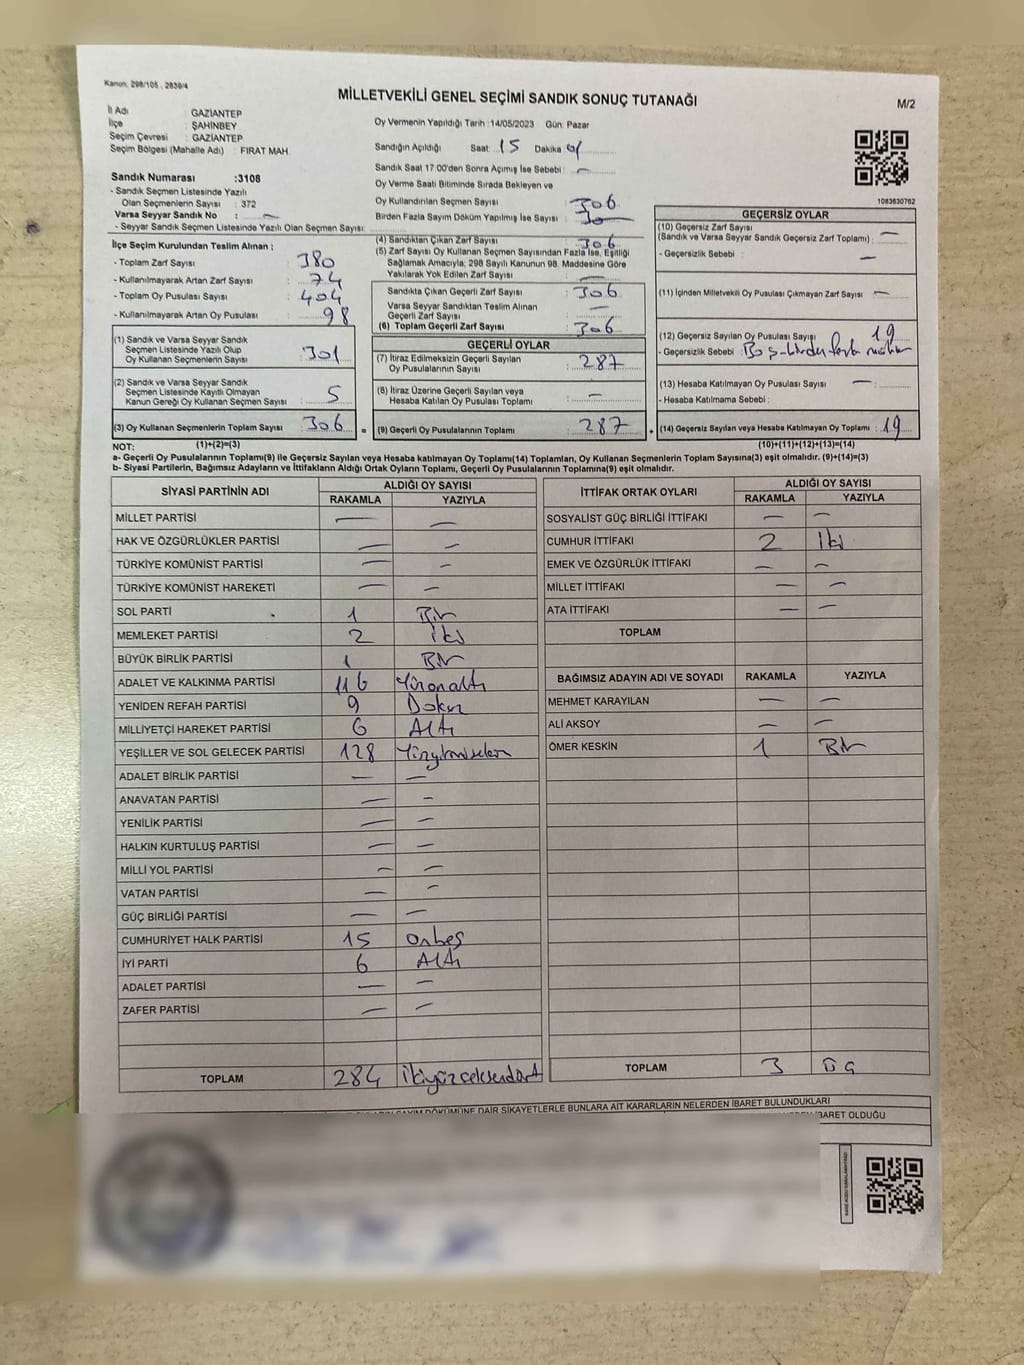 Kanun, 298/105 , 2839/4
MİLLETVEKİLİ GENEL SEÇİMİ SANDIK SONUÇ TUTANAĞI
M/2
İl Adı : GAZİANTEP
İlçe : ŞAHİNBEY
Seçim Çevresi : GAZİANTEP
Seçim Bölgesi (Mahalle Adı) : FIRAT MAH.
Oy Vermenin Yapıldığı Tarih :14/05/2023 Gün: Pazar
Sandığın Açıldığı Saat: 15 Dakika
Sandık Saat 17:00'den Sonra Açımış İse Sebebi : —
Oy Verme Saati Bitiminde Sırada Bekleyen ve
Oy Kullandırılan Seçmen Sayısı : 306
Birden Fazla Sayım Döküm Yapılmış İse Sayısı :
1083630762
Sandık Numarası :3108
- Sandık Seçmen Listesinde Yazılı
Olan Seçmenlerin Sayısı : 372
Varsa Seyyar Sandık No : —
- Seyyar Sandık Seçmen Listesinde Yazılı Olan Seçmen Sayısı:
İlçe Seçim Kurulundan Teslim Alınan :
- Toplam Zarf Sayısı : 380
- Kullanılmayarak Artan Zarf Sayısı : 74
- Toplam Oy Pusulası Sayısı : 404
- Kullanılmayarak Artan Oy Pusulası : 98
(1) Sandık ve Varsa Seyyar Sandık
Seçmen Listesinde Yazılı Olup
Oy Kullanan Seçmenlerin Sayısı : 301
(2) Sandık ve Varsa Seyyar Sandık
Seçmen Listesinde Kayıtlı Olmayan
Kanun Gereği Oy Kullanan Seçmen Sayısı : 5
(3) Oy Kullanan Seçmenlerin Toplam Sayısı : 306
(4) Sandıktan Çıkan Zarf Sayısı : 306
(5) Zarf Sayısı Oy Kullanan Seçmen Sayısından Fazla İse, Eşitliği
Sağlamak Amacıyla; 298 Sayılı Kanunun 98. Maddesine Göre
Yakılarak Yok Edilen Zarf Sayısı : —
Sandıkta Çıkan Geçerli Zarf Sayısı : 306
Varsa Seyyar Sandıktan Teslim Alınan
Geçerli Zarf Sayısı : —
(6) Toplam Geçerli Zarf Sayısı : 306
GEÇERLİ OYLAR
(7) İtiraz Edilmeksizin Geçerli Sayılan
Oy Pusulalarının Sayısı : 287
(8) İtiraz Üzerine Geçerli Sayılan veya
Hesaba Katılan Oy Pusulası Toplamı : —
= (9) Geçerli Oy Pusulalarının Toplamı : 287
GEÇERSİZ OYLAR
(10) Geçersiz Zarf Sayısı
(Sandık ve Varsa Seyyar Sandık Geçersiz Zarf Toplamı) : —
- Geçersizlik Sebebi : —
(11) İçinden Milletvekili Oy Pusulası Çıkmayan Zarf Sayısı : —
(12) Geçersiz Sayılan Oy Pusulası Sayısı : 19
- Geçersizlik Sebebi : Boş-birden fazla mühür
(13) Hesaba Katılmayan Oy Pusulası Sayısı : —
- Hesaba Katılmama Sebebi :
+ (14) Geçersiz Sayılan veya Hesaba Katılmayan Oy Toplamı : 19
NOT: (1)+(2)=(3) (10)+(11)+(12)+(13)=(14)
a- Geçerli Oy Pusulalarının Toplamı(9) ile Geçersiz Sayılan veya Hesaba katılmayan Oy Toplamı(14) Toplamları, Oy Kullanan Seçmenlerin Toplam Sayısına(3) eşit olmalıdır. (9)+(14)=(3)
b- Siyasi Partilerin, Bağımsız Adayların ve İttifakların Aldığı Ortak Oyların Toplamı, Geçerli Oy Pusulalarının Toplamına(9) eşit olmalıdır.
SİYASİ PARTİNİN ADI ALDIĞI OY SAYISI
RAKAMLA YAZIYLA
MİLLET PARTİSİ — —
HAK VE ÖZGÜRLÜKLER PARTİSİ — —
TÜRKİYE KOMÜNİST PARTİSİ — —
TÜRKİYE KOMÜNİST HAREKETİ — —
SOL PARTİ 1 Bir
MEMLEKET PARTİSİ 2 iki
BÜYÜK BİRLİK PARTİSİ 1 Bir
ADALET VE KALKINMA PARTİSİ 116 Yüzonaltı
YENİDEN REFAH PARTİSİ 9 Dokuz
MİLLİYETÇİ HAREKET PARTİSİ 6 Altı
YEŞİLLER VE SOL GELECEK PARTİSİ 128 Yüzyirmisekiz
ADALET BİRLİK PARTİSİ — —
ANAVATAN PARTİSİ — —
YENİLİK PARTİSİ — —
HALKIN KURTULUŞ PARTİSİ — —
MİLLİ YOL PARTİSİ — —
VATAN PARTİSİ — —
GÜÇ BİRLİĞİ PARTİSİ — —
CUMHURİYET HALK PARTİSİ 15 Onbeş
İYİ PARTİ 6 Altı
ADALET PARTİSİ — —
ZAFER PARTİSİ — —
TOPLAM 284 ikiyüzseksendört
İTTİFAK ORTAK OYLARI ALDIĞI OY SAYISI
RAKAMLA YAZIYLA
SOSYALİST GÜÇ BİRLİĞİ İTTİFAKI — —
CUMHUR İTTİFAKI 2 iki
EMEK VE ÖZGÜRLÜK İTTİFAKI — —
MİLLET İTTİFAKI — —
ATA İTTİFAKI — —
TOPLAM
BAĞIMSIZ ADAYIN ADI VE SOYADI RAKAMLA YAZIYLA
MEHMET KARAYILAN — —
ALİ AKSOY — —
ÖMER KESKİN 1 Bir
TOPLAM 3 üç
DÖKÜMÜNE DAİR ŞİKAYETLERLE BUNLARA AİT KARARLARIN NELERDEN İBARET BULUNDUKLARI
İBARET OLDUĞU